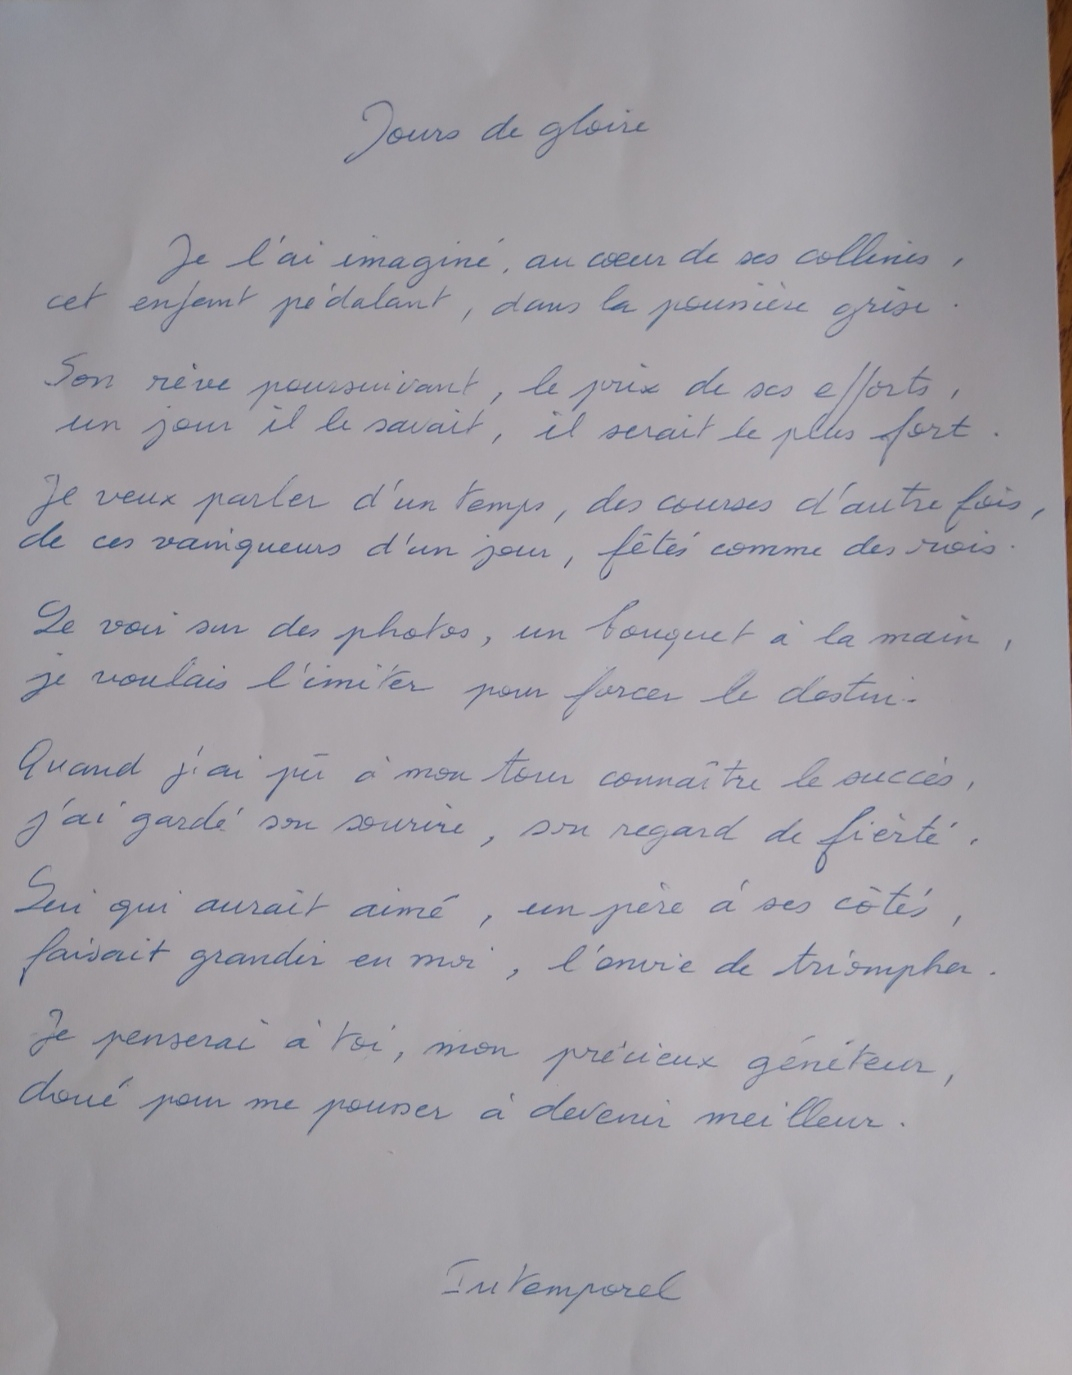 Jours de gloire
Je l'ai imaginé, au cœur de ses collines,
cet enfant pédalant, dans la poussière grise.
Son rêve poursuivant, le prix de ses efforts,
un jour il le savait, il serait le plus fort.
Je veux parler d'un temps, des courses d'autre fois,
de ces vainqueurs d'un jour, fêtés comme des rois.
Le voir sur des photos, un bouquet à la main,
je voulais l'imiter pour forcer le destin.
Quand j'ai pû à mon tour connaître le succès,
j'ai gardé son sourire, son regard de fièrté.
Lui qui aurait aimé, un père à ses côtés,
faisait grandir en moi, l'envie de triompher.
Je penserai à toi, mon précieux géniteur,
doué pour me pousser à devenir meilleur.
Intemporel